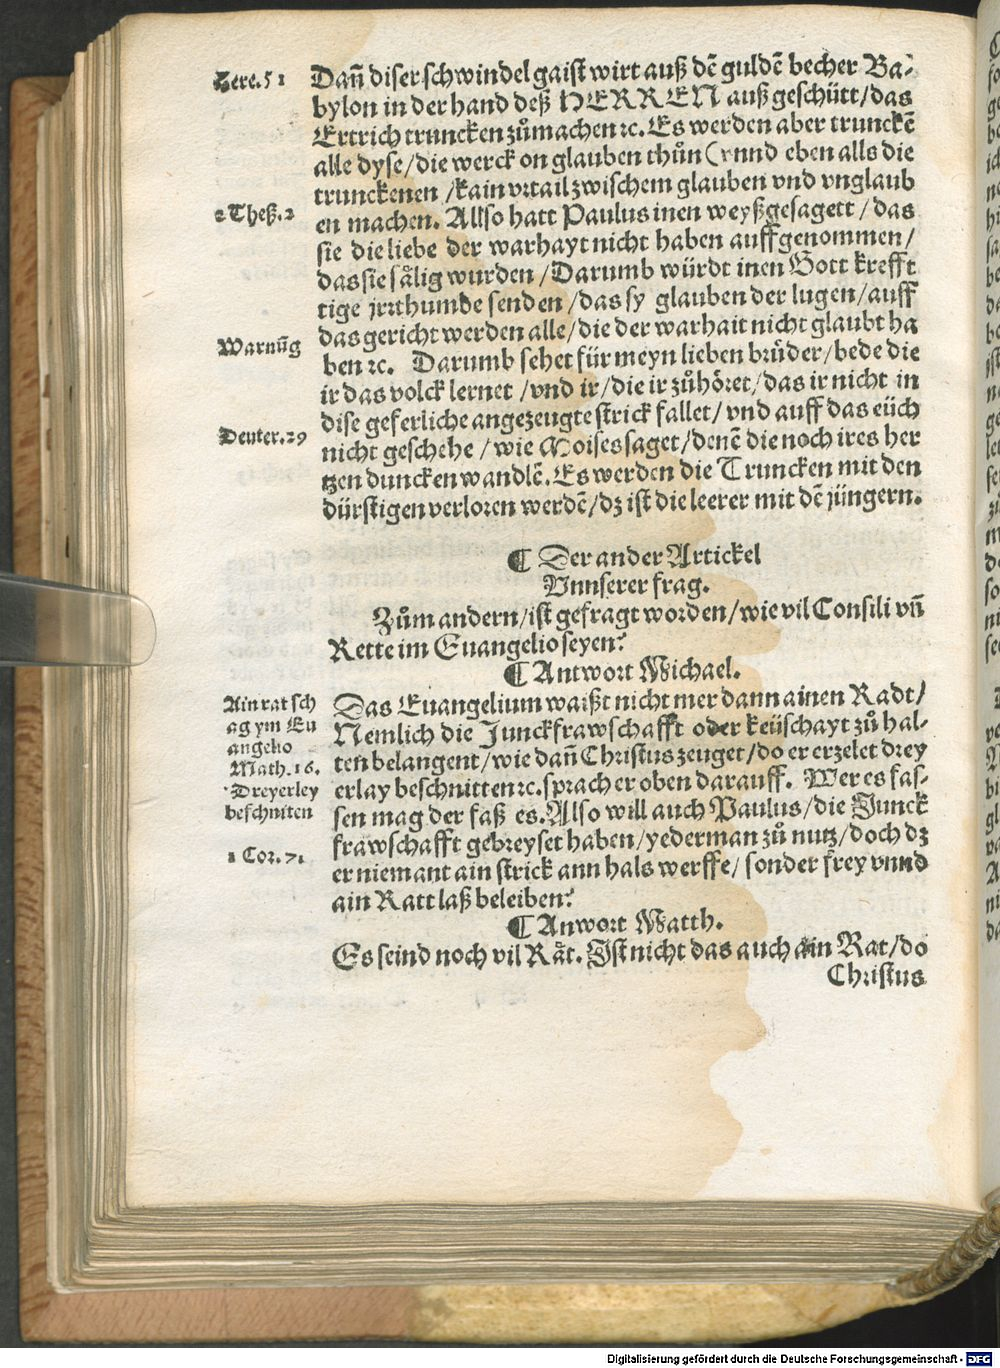 Jere.51
Dañ diser schwindel gaist wirt auß dē guldē becher Ba-
bylon in der hand deß HERREN auß geschütt/das
Ertrich truncken zůmachen ꝛc. Es werden aber trunckē
alle dyse/die werck on glauben thůn (vnnd eben alls die
trunckenen/kain vrtail zwischem glauben vnd vnglaub
2 Theß.2
en machen. Allso hatt Paulus inen weyßgesagett/das
sie die liebe der warhayt nicht haben auffgenommen/
das sie sålig wurden/Darumb würdt inen Gott krefft
tige jrrthumbe senden/das sy glauben der lugen/auff
das gericht werden alle/die der warhait nicht glaubt ha
Warnūg
ben ꝛc. Darumb sehet für meyn lieben brůder/bede die
ir das volck lernet/vnd ir/die ir zůhöret/das ir nicht in
dise geferliche angezeugte strick fallet/vnd auff das eüch
Deuter.29
nicht geschehe/wie Moises saget/denē die noch ires her
tzen duncken wandlē. Es werden die Truncken mit den
dürstigen verloren werdē/dz ist die leerer mit dē jüngern.
¶ Der ander Artickel
Vnnserer frag.
Zům andern/ist gefragt worden/wie vil Consili vñ
Rette im Euangelio seyen?
¶ Antwort Michael.
Ain rat sch
ag ym Eu
angelio
Math.16.
Dreyerley
beschniten
Das Euangelium waißt nicht mer dann ainen Radt/
Nemlich die Junckfrawschafft oder keüschayt zů hal-
ten belangent/wie dañ Christus zeuget/do er erzelet drey
erlay beschnitten ꝛc. sprach er oben darauff. Wer es fas-
sen mag der faß es. Also will auch Paulus/die Junck
frawschafft gebreyset haben/yederman zů nutz/doch dz
1 Cor.71
er niemant ain strick ann hals werffe/sonder frey vnnd
ain Ratt laß beleiben?
¶ Anwort Matth.
Es seind noch vil Råt. Ist nicht das auch ain Rat/do
Christus
Digitalisierung gefördert durch die Deutsche Forschungsgemeinschaft - DFG